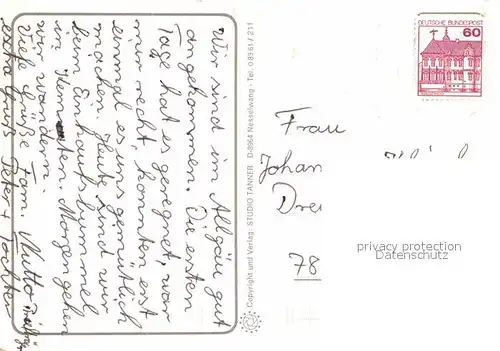 Wir sind im Allgäu gut
angekommen. Die ersten
Tage hat es geregnet, war
nur recht, konnten erst
einmal es uns gemütlich
machen. Heute sind wir
beim Einkaufsbummel
in Kempten. Morgen gehen
wir wandern.
Viele Grüße Fam.
extra Gruß Peter + Tochter
Copyright und Verlag: STUDIO TANNER D-8964 Nesselwang - Tel. 08361 / 211
DEUTSCHE BUNDESPOST
60
Frau
Johan
Drei
78
privacy protection
Datenschutz